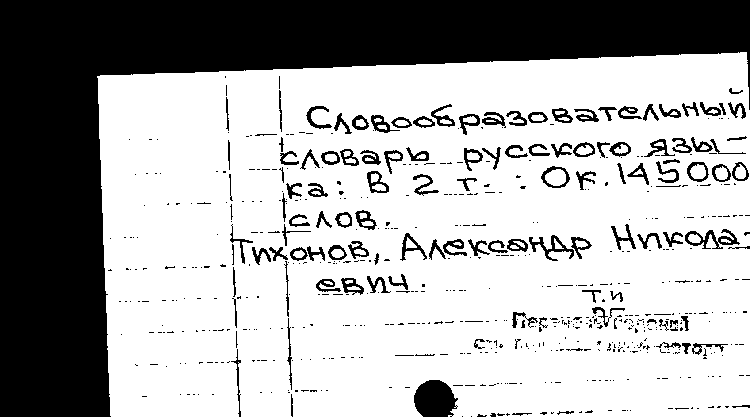 Словообразовательный
словарь русского язы-
ка: В 2 т. : Ок. 145000
слов.
Тихонов, Александр Никола-
евич.
т. и